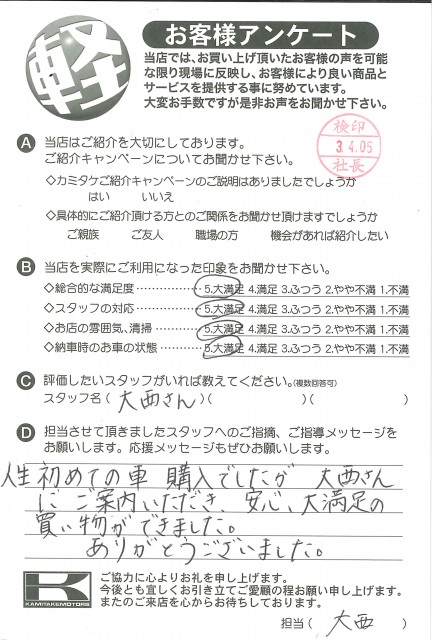 軽
お客様アンケート
当店では、お買い上げ頂いたお客様の声を可能
な限り現場に反映し、お客様により良い商品と
サービスを提供する事に努めています。
大変お手数ですが是非お声をお聞かせ下さい。
検印
3.4.05
社長
A 当店はご紹介を大切にしております。
ご紹介キャンペーンについてお聞かせ下さい。
◇カミタケご紹介キャンペーンのご説明はありましたでしょうか
はい いいえ
◇具体的にご紹介頂ける方とのご関係をお聞かせ頂けますでしょうか
ご親族 ご友人 職場の方 機会があれば紹介したい
B 当店を実際にご利用になった印象をお聞かせ下さい。
◇総合的な満足度 5.大満足 4.満足 3.ふつう 2.やや不満 1.不満
◇スタッフの対応 5.大満足 4.満足 3.ふつう 2.やや不満 1.不満
◇お店の雰囲気、清掃 5.大満足 4.満足 3.ふつう 2.やや不満 1.不満
◇納車時のお車の状態 5.大満足 4.満足 3.ふつう 2.やや不満 1.不満
C 評価したいスタッフがいれば教えてください。(複数回答可)
スタッフ名(大西さん)( )( )
D 担当させて頂きましたスタッフへのご指摘、ご指導メッセージを
お願いします。応援メッセージもぜひお願いします。
人生初めての車 購入でしたが 大西さん
にご案内いただき、安心、大満足の
買い物ができました。
ありがとうございました。
K
KAMITAKEMOTORS
ご協力に心よりお礼を申し上げます。
今後とも宜しくお引き立てご愛顧の程お願い申し上げます。
またのご来店を心からお待ちしております。
担当(大西)